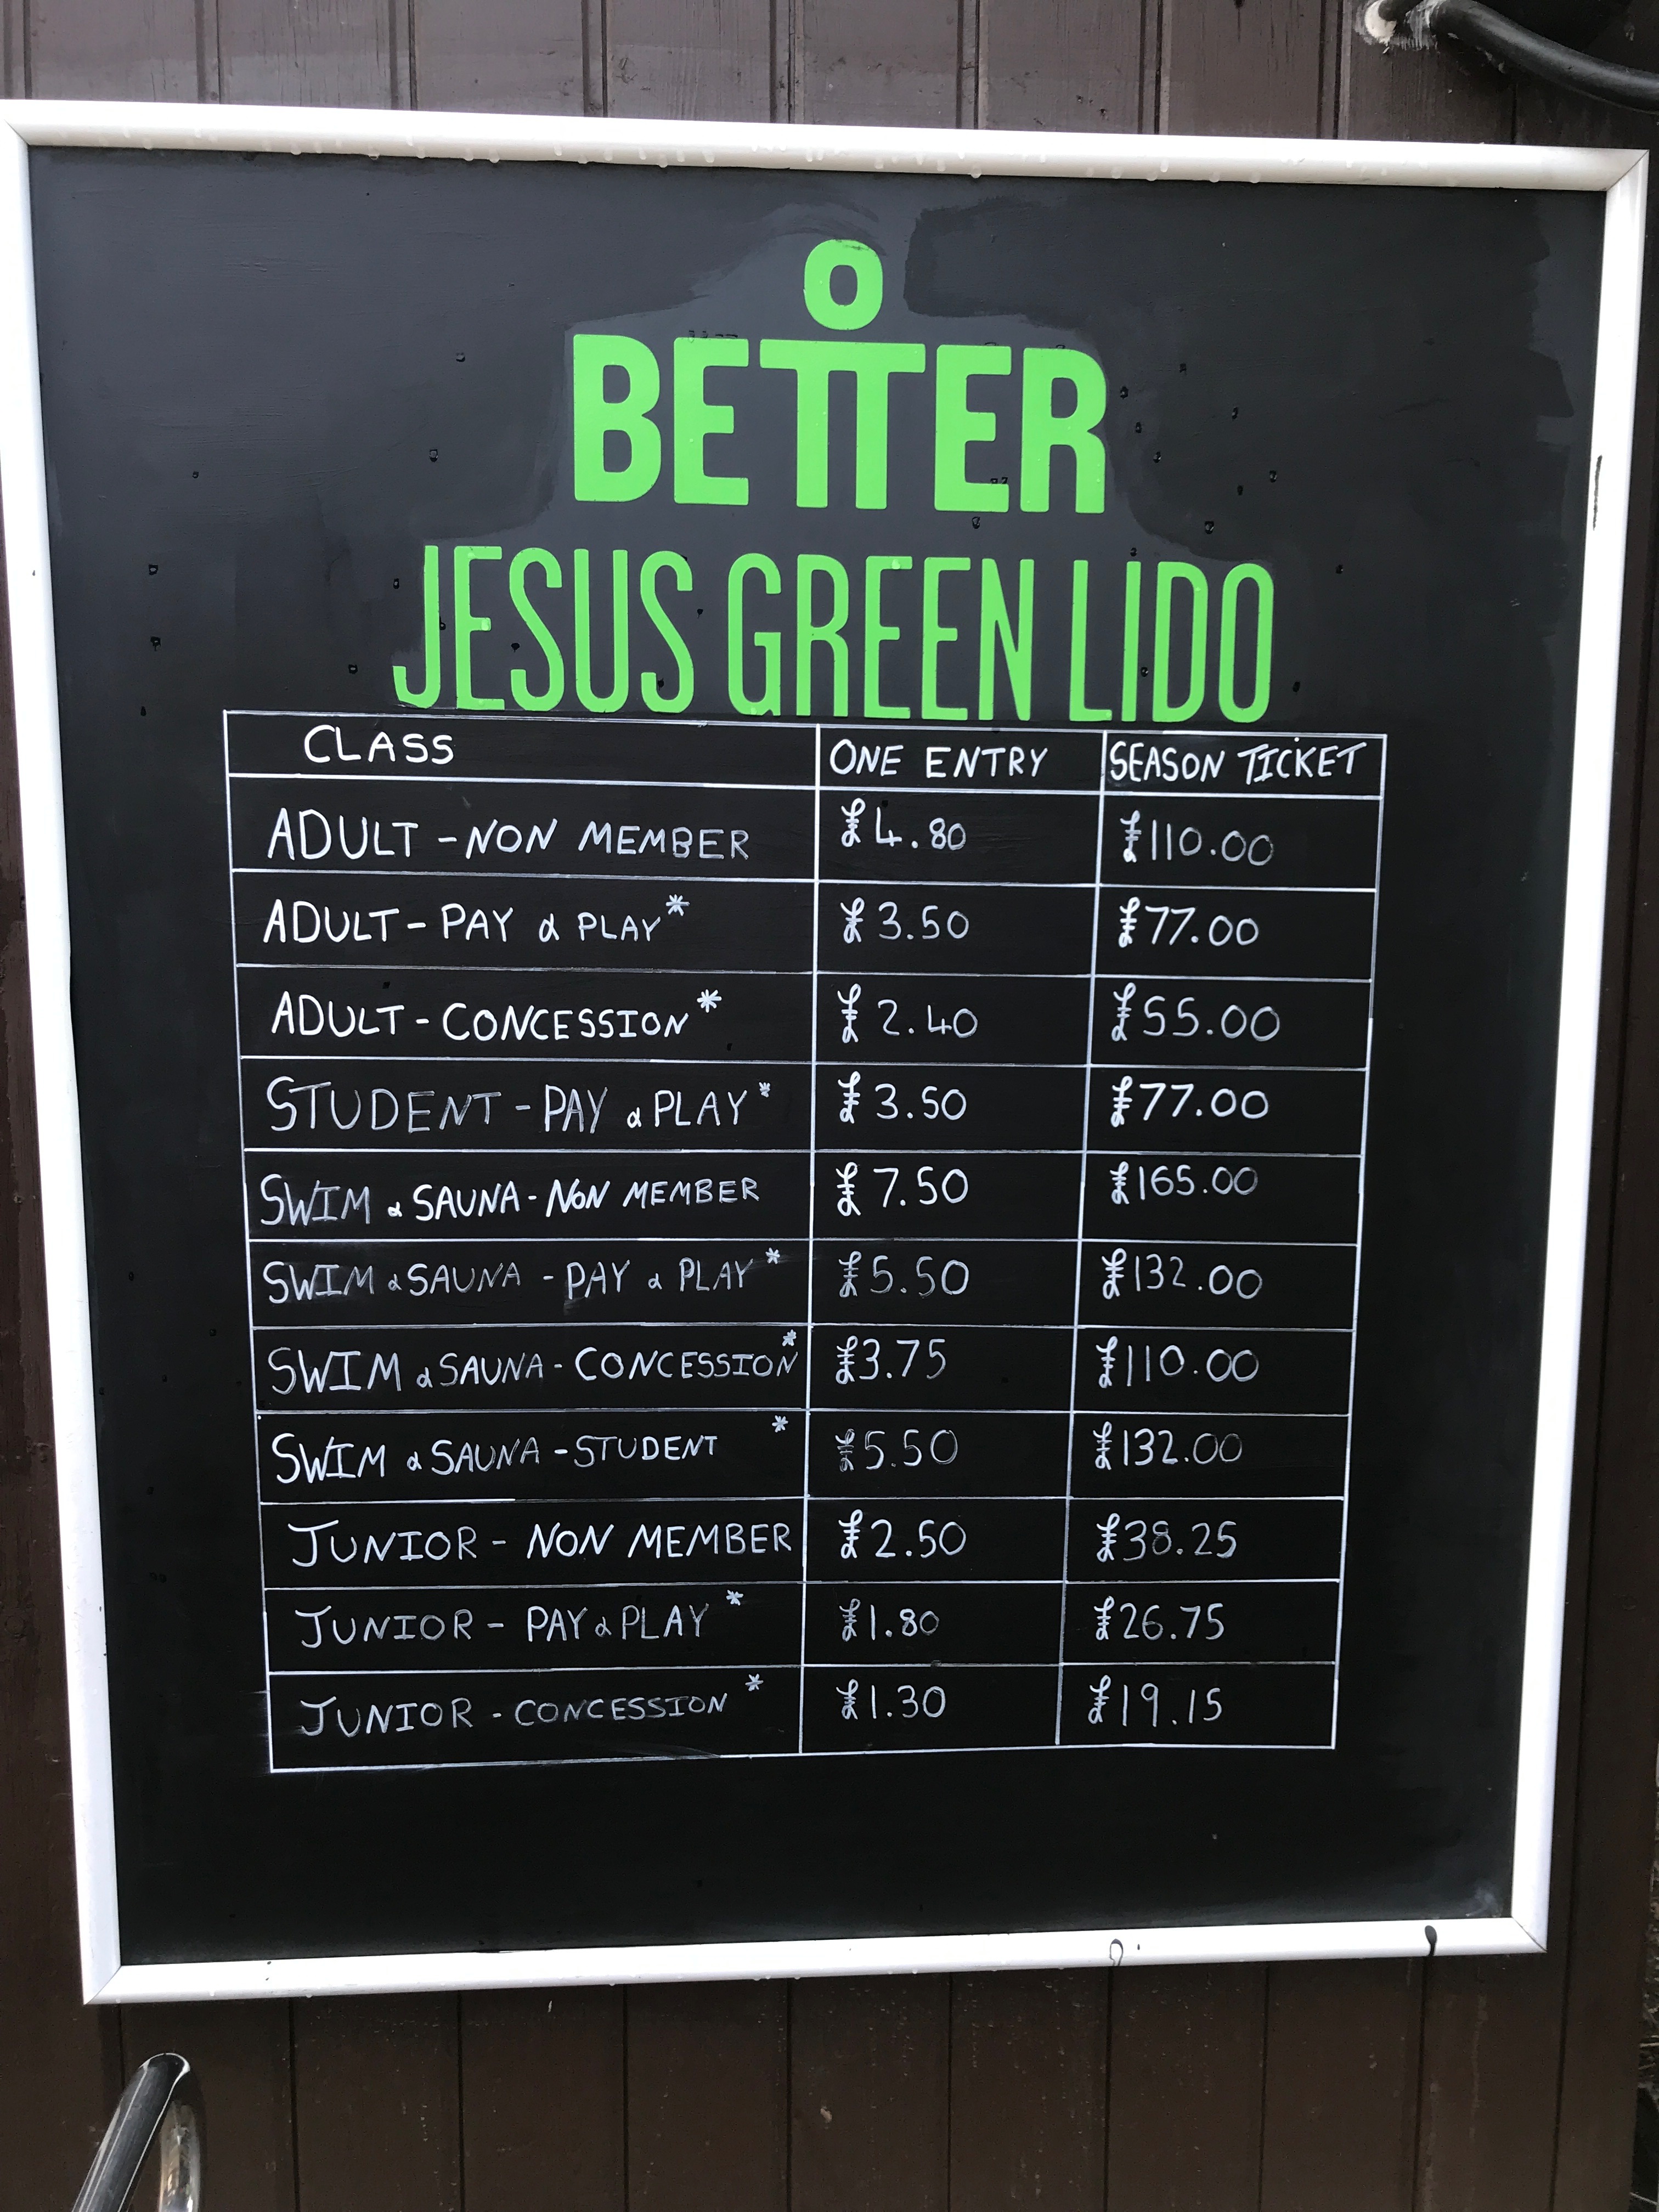 BETTER
JESUS GREEN LIDO
CLASS ONE ENTRY SEASON TICKET
ADULT - NON MEMBER £4.80 £110.00
ADULT - PAY & PLAY* £3.50 £77.00
ADULT - CONCESSION* £2.40 £55.00
STUDENT - PAY & PLAY* £3.50 £77.00
SWIM & SAUNA - NON MEMBER £7.50 £165.00
SWIM & SAUNA - PAY & PLAY* £5.50 £132.00
SWIM & SAUNA - CONCESSION* £3.75 £110.00
SWIM & SAUNA - STUDENT* £5.50 £132.00
JUNIOR - NON MEMBER £2.50 £38.25
JUNIOR - PAY & PLAY* £1.80 £26.75
JUNIOR - CONCESSION* £1.30 £19.15